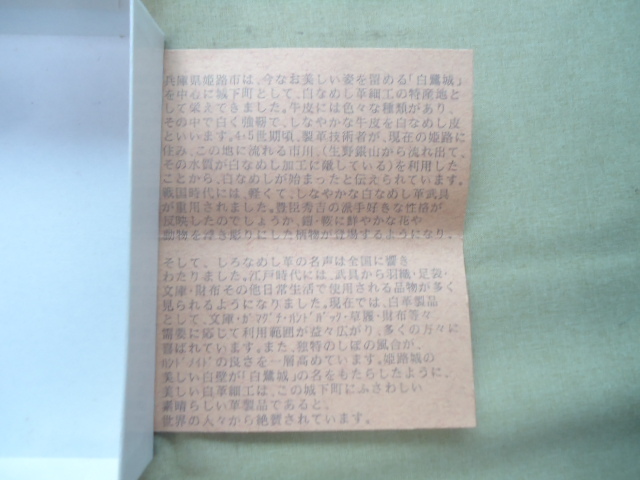 兵庫県姫路市は、今なお美しい姿を留める「白鷺城」
を中心に城下町として、白なめし革細工の特産地と
して栄えてきました。牛皮には色々な種類があり、
その中で白く強靭で、しなやかな牛皮を白なめし皮
といいます。4・5世期頃、製革技術者が、現在の姫路に
住み、この地に流れる市川、(生野銀山から流れ出て、
その水質が白なめし加工に敵している)を利用した
ことから、白なめしが始まったと伝えられています。
戦国時代には、軽くて、しなやかな白なめし革武具
が重用されました。豊臣秀吉の派手好きな性格が、
反映したのでしょうか、鎧・鞍に鮮やかな花や
動物を浮き彫りにした柄物が登場するようになり、
そして、しろなめし革の名声は全国に響き
わたりました。江戸時代には、武具から羽織・足袋・
文庫・財布その他日常生活で使用される品物が多く
見られるようになりました。現在では、白革製品
として、文庫・ガマグチ・ハンドバック・草履・財布等々
需要に応じて利用範囲が益々広がり、多くの方々に
喜ばれています。また、独特のしぼの風合が、
ハンドメイドの良さを一層高めています。姫路城の
美しい白壁が「白鷺城」の名をもたらしたように、
美しい白革細工は、この城下町にふさわしい
素晴らしい革製品であると、
世界の人々から絶賛されています。